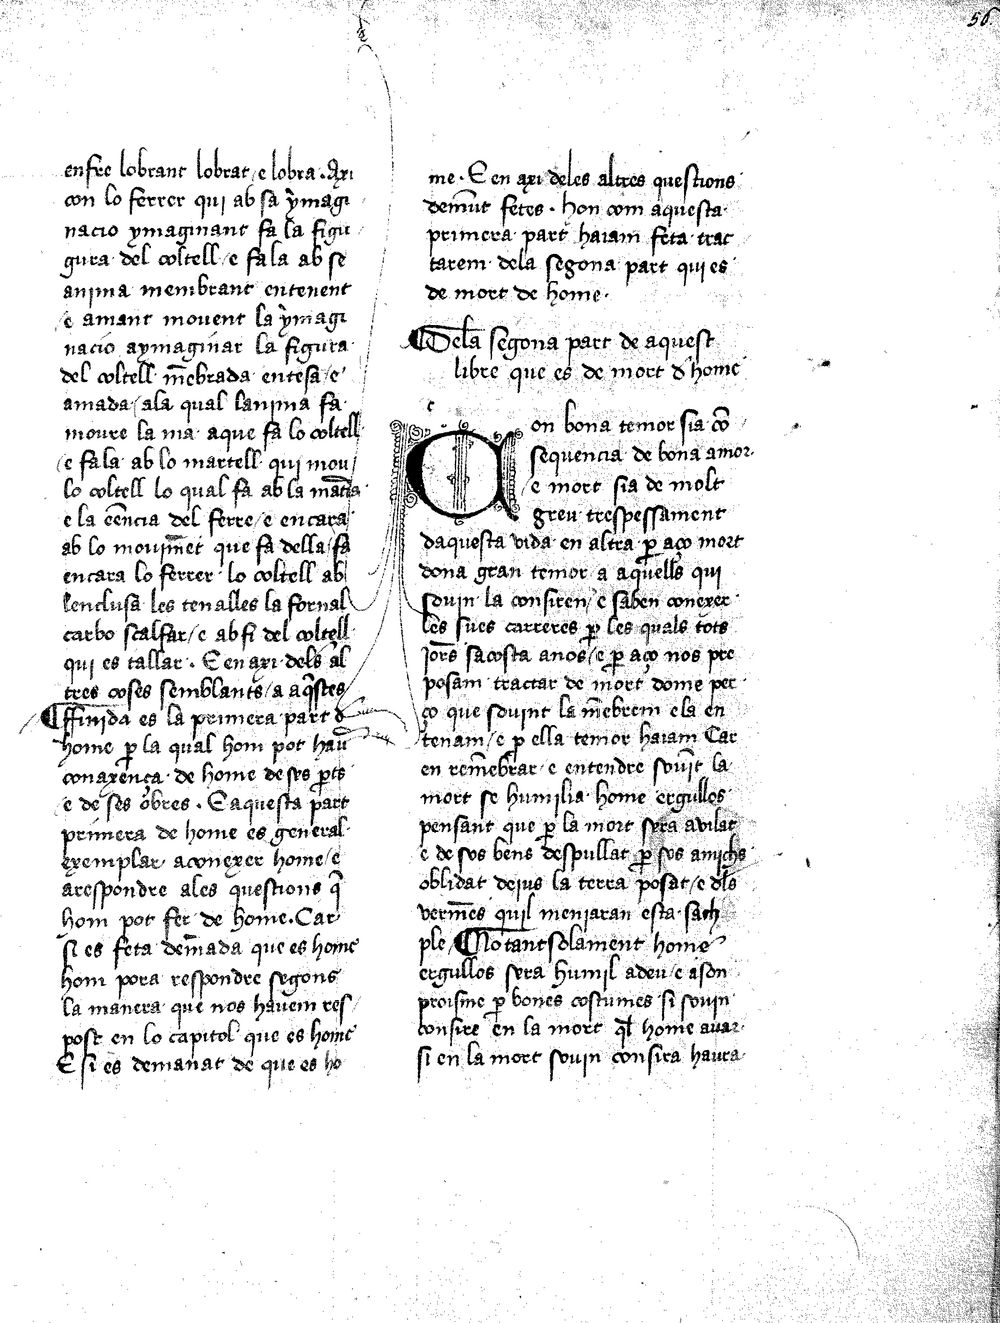 56
enfre lobrant lobrat / e lobra. Axi
con lo ferrer qui ab sa ymagi
nacio ymaginant fa la figu
gura del coltell / e fa la ab se
anima membrant entenent
/ e amant mouent la ymagi
nacio aymaginar la figura
del coltell m̄ebrada entesa / e
amada / ala qual lanima fa
moure la ma aque fa lo coltell
/ e fa la ab lo martell qui mou
lo coltell lo qual fa ab la mat̄ia
e la eēncia del ferre / e encara
ab lo mouim̄et que fa della / fa
encara lo ferrer lo coltell ab
lenclusa les tenalles la fornal
carbo scalfar / e ab fi del coltell
qui es tallar. E en axi dels al
tres coses semblants / a aq̄stes
¶ ffinida es la primera part d
home p̱ la qual hom pot hau̅
conaxença de home de ses p̱ts
e de ses obres. E aquesta part
primera de home es general
exemplar aconexer home / e
arespondre ales questions q̄
hom pot fer de home. Car
si es feta demāda que es home
hom pora respondre segons
la manera que nos hauem res
post en lo capitol que es home
E si es demanat de que es ho
me. E en axi deles altres questions
dem̄ut fetes. hon com aquesta
primera part haiam feta trac
tarem dela segona part qui es
de mort de home.
¶ Dela segona part de aquest
libre que es de mort d home
c
Con bona temor sia cō
sequencia de bona amor
/ e mort sia de molt
greu trespessament
daquesta vida en altra p̱ aço mort
dona gran temor a aquells qui
souin la consiren / e saben conexer
les sues carreres p̱ les quals tots
jors̄ sacosta anos / e p̱ aço nos pre
posam tractar de mort dome per
ço que souint la m̄ebrem e la en
tenam / e p̱ ella temor haiam Car
en rem̄ebrar e entendre souīt la
mort se humilia home ergullos
pensant que p̱ la mort sera auilat
e de sos bens despullat p̱ sos amichs
oblidat dejus la terra posat / e dls̄
verm̄es quil meniaran esta sach
ple / ¶ No tant solament home
ergullos sera humil adeu / e a son
proisme p̱ bones costumes si souin
consire en la mort ql̄ home auar
si en la mort souin consira haura